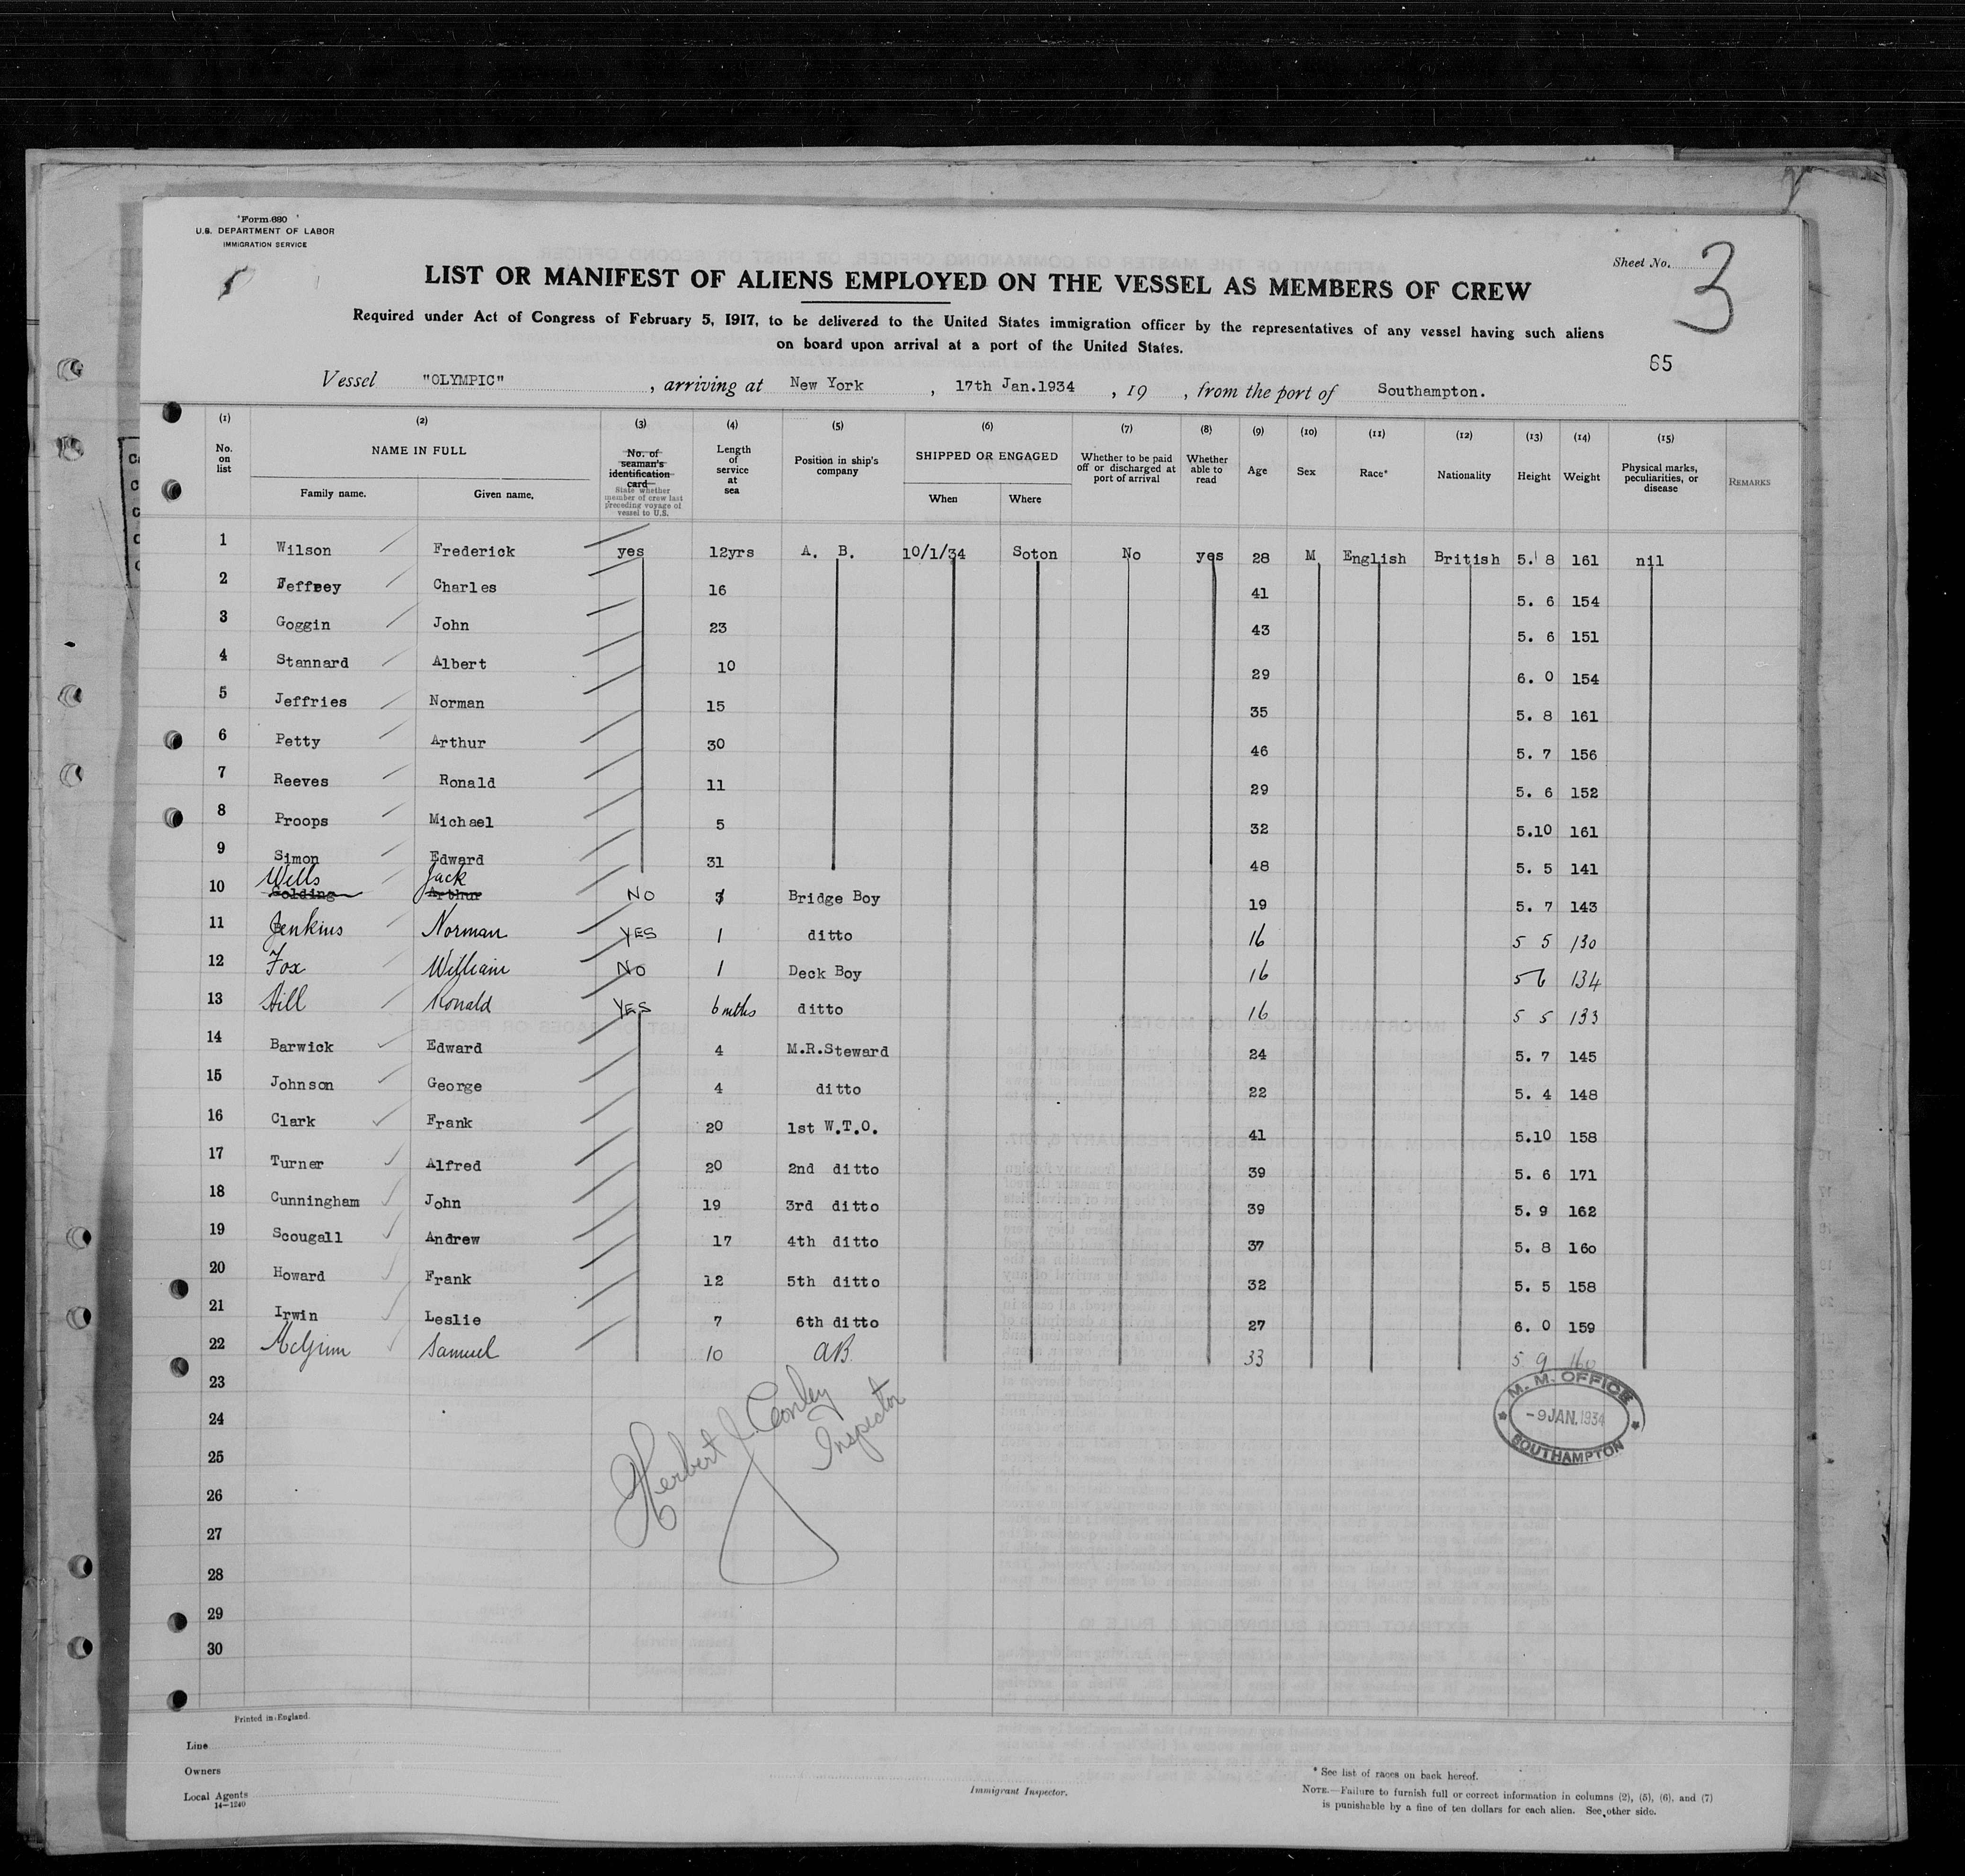 Form 680
U.S. DEPARTMENT OF LABOR
IMMIGRATION SERVICE
Sheet No. 3
LIST OR MANIFEST OF ALIENS EMPLOYED ON THE VESSEL AS MEMBERS OF CREW
Required under Act of Congress of February 5, 1917, to be delivered to the United States immigration officer by the representatives of any vessel having such aliens
on board upon arrival at a port of the United States.
65
Vessel "OLYMPIC", arriving at New York, 17th Jan.1934, 19 , from the port of Southampton.
(1) (2) (3) (4) (5) (6) (7) (8) (9) (10) (11) (12) (13) (14) (15)
No. on list NAME IN FULL Family name. Given name. No. of seaman's identification card State whether member of crew last preceding voyage of vessel to U.S. Length of service at sea Position in ship's company SHIPPED OR ENGAGED When Where Whether to be paid off or discharged at port of arrival Whether able to read Age Sex Race* Nationality Height Weight Physical marks, peculiarities, or disease REMARKS
1 Wilson Frederick yes 12yrs A. B. 10/1/34 Soton No yes 28 M English British 5. 8 161 nil
2 Jeffrey Charles 16 41 5. 6 154
3 Goggin John 23 43 5. 6 151
4 Stannard Albert 10 29 6. 0 154
5 Jeffries Norman 15 35 5. 8 161
6 Petty Arthur 30 46 5. 7 156
7 Reeves Ronald 11 29 5. 6 152
8 Proops Michael 5 32 5.10 161
9 Simon Edward 31 48 5. 5 141
Wells Jack
10 Golding Arthur NO 3 Bridge Boy 19 5. 7 143
11 Jenkins Norman YES 1 ditto 16 5 5 130
12 Fox William NO 1 Deck Boy 16 5 6 134
13 Hill Ronald YES 6 mths ditto 16 5 5 133
14 Barwick Edward 4 M.R.Steward 24 5. 7 145
15 Johnson George 4 ditto 22 5. 4 148
16 Clark Frank 20 1st W.T.O. 41 5.10 158
17 Turner Alfred 20 2nd ditto 39 5. 6 171
18 Cunningham John 19 3rd ditto 39 5. 9 162
19 Scougall Andrew 17 4th ditto 37 5. 8 160
20 Howard Frank 12 5th ditto 32 5. 5 158
21 Irwin Leslie 7 6th ditto 27 6. 0 159
22 McGinn Samuel 10 AB 33 5 9 160
23
24
25
26
27
28
29
30
Herbert J. Conley
Inspector
M. M. OFFICE
-9 JAN. 1934
SOUTHAMPTON
Printed in England.
Line
Owners
Local Agents
14-1240
Immigrant Inspector.
* See list of races on back hereof.
NOTE.—Failure to furnish full or correct information in columns (2), (5), (6), and (7)
is punishable by a fine of ten dollars for each alien. See other side.